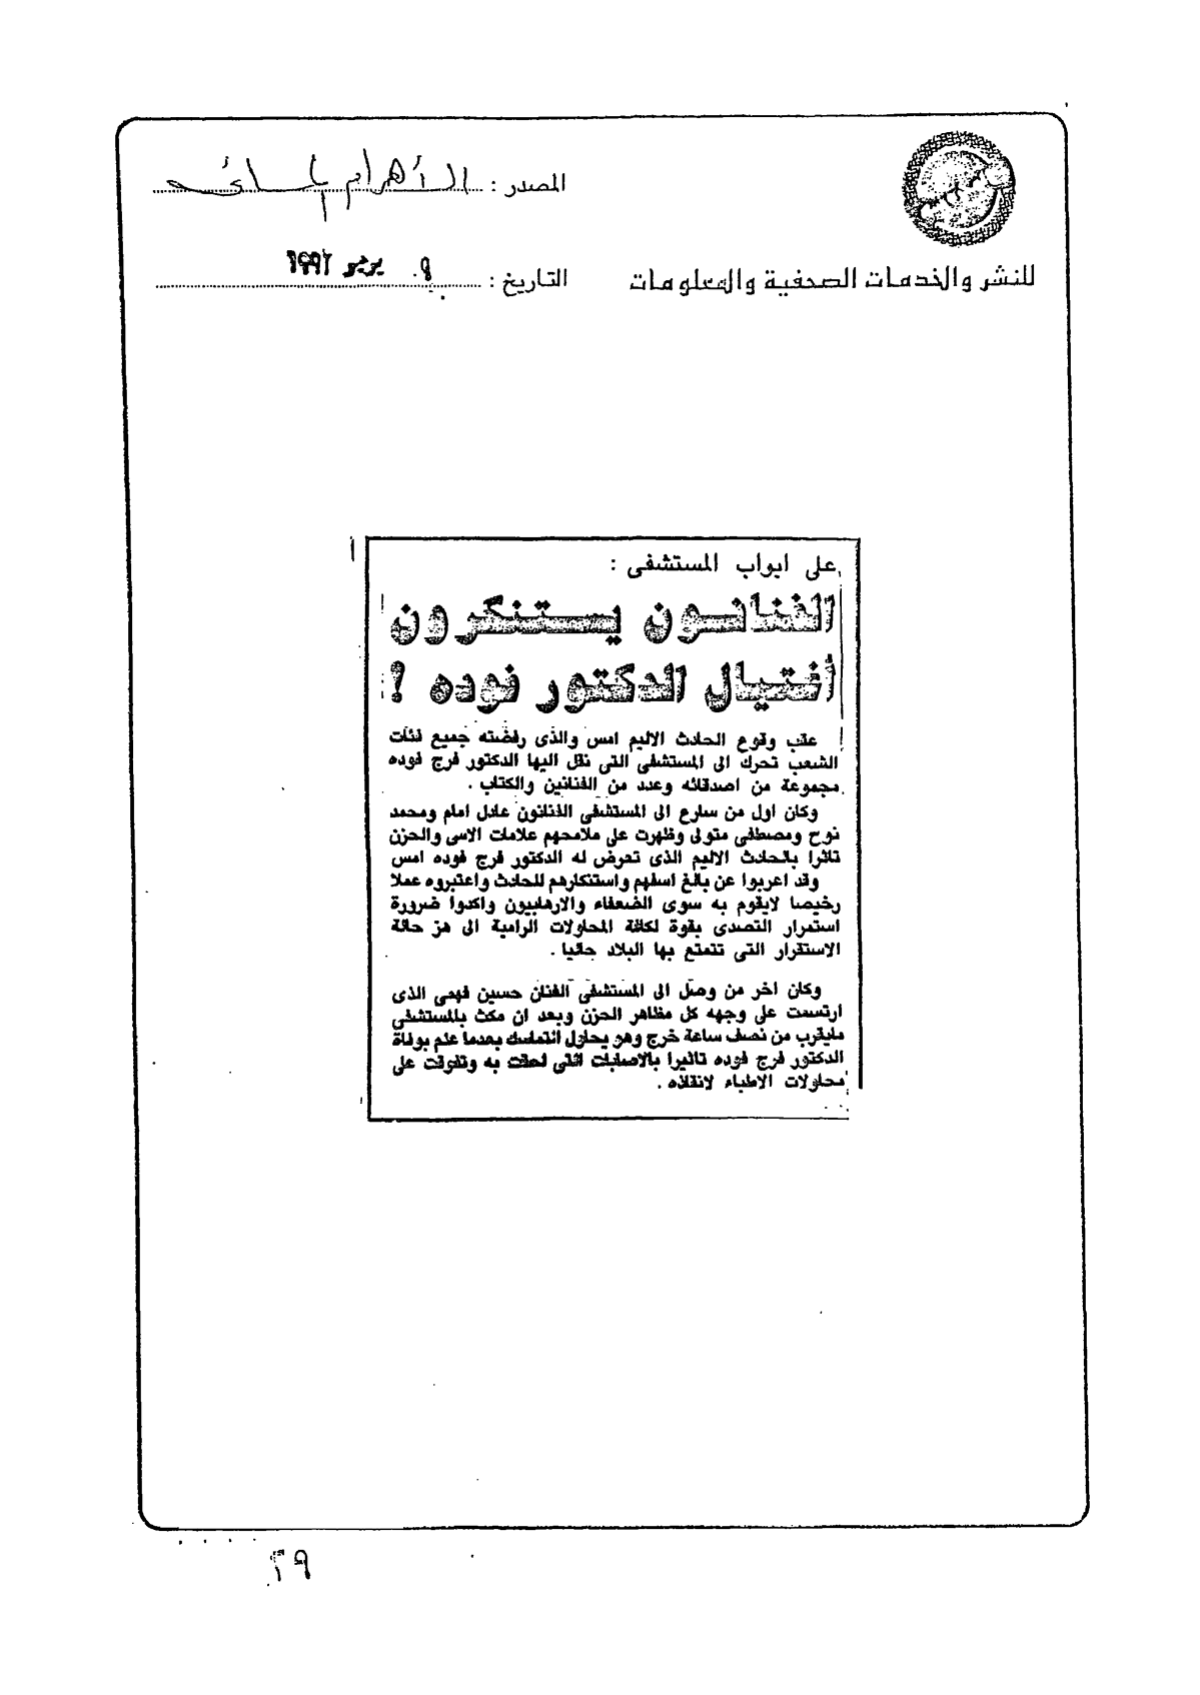 المصدر : الأهرام المسائى
للنشر والخدمات الصحفية والمعلومات
التاريخ : ٩ يونيو ١٩٩٢
على ابواب المستشفى :
الفنانون يستنكرون
أغتيال الدكتور فوده ؟
عقب وقوع الحادث الاليم امس والذى رفضته جميع فئات
الشعب تحرك الى المستشفى التى نقل اليها الدكتور فرج فوده
مجموعة من اصدقائه وعدد من الفنانين والكتاب .
وكان اول من سارع الى المستشفى الفنانون عادل امام ومحمد
نوح ومصطفى متولى وظهرت على ملامحهم علامات الاسى والحزن
تاثرا بالحادث الاليم الذى تعرض له الدكتور فرج فوده امس
وقد اعربوا عن بالغ اسفهم واستنكارهم للحادث واعتبروه عملا
رخيصا لايقوم به سوى الضعفاء والارهابيون واكدوا ضرورة
استمرار التصدى بقوة لكافة المحاولات الرامية الى هز حالة
الاستقرار التى تتمتع بها البلاد حاليا .
وكان اخر من وصل الى المستشفى الفنان حسين فهمى الذى
ارتسمت على وجهه كل مظاهر الحزن وبعد ان مكث بالمستشفى
مايقرب من نصف ساعة خرج وهو يحاول التماسك بعدما علم بوفاة
الدكتور فرج فوده تاثيرا بالاصابات التى لحقت به وتفوقت على
محاولات الاطباء لانقاذه .
٢٩